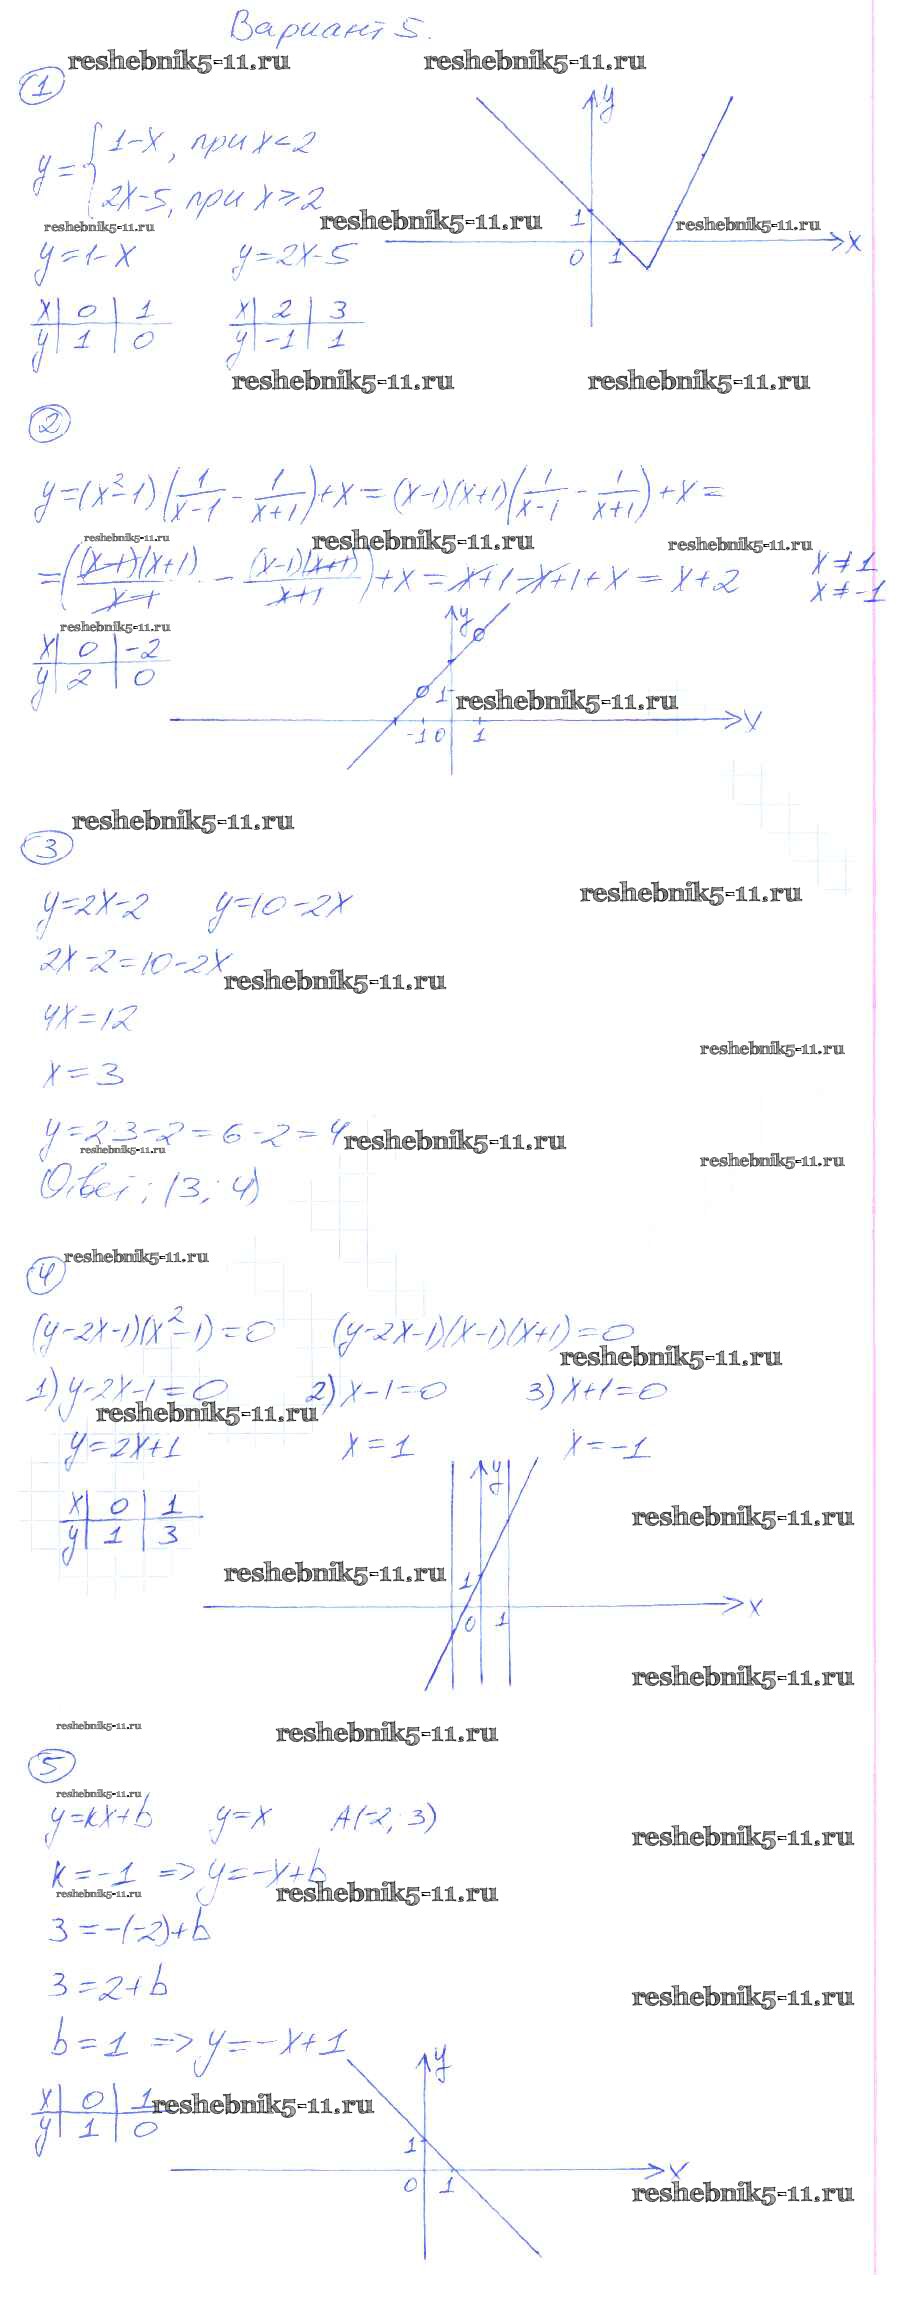 Вариант 5.
reshebnik5-11.ru reshebnik5-11.ru
1
y
y = { 1-x, при x < 2
2x-5, при x ≥ 2
reshebnik5-11.ru reshebnik5-11.ru reshebnik5-11.ru
1
0 1 x
y=1-x y=2x-5
x | 0 | 1 x | 2 | 3
y | 1 | 0 y | -1 | 1
reshebnik5-11.ru reshebnik5-11.ru
2
y=(x²-1)(1/(x-1) - 1/(x+1))+x = (x-1)(x+1)(1/(x-1) - 1/(x+1))+x =
reshebnik5-11.ru reshebnik5-11.ru reshebnik5-11.ru
=((x-1)(x+1)/(x-1) - (x-1)(x+1)/(x+1))+x = x+1-x+1+x = x+2 x≠1
x≠-1
reshebnik5-11.ru
y
x | 0 | -2
y | 2 | 0
1 reshebnik5-11.ru
-1 0 1 x
reshebnik5-11.ru
3
reshebnik5-11.ru
y=2x-2 y=10-2x
2x-2=10-2x
reshebnik5-11.ru
4x=12
reshebnik5-11.ru
x=3
y=2·3-2=6-2=4
reshebnik5-11.ru reshebnik5-11.ru
reshebnik5-11.ru
Ответ: (3; 4)
reshebnik5-11.ru
4
(y-2x-1)(x²-1)=0 (y-2x-1)(x-1)(x+1)=0
reshebnik5-11.ru
1) y-2x-1=0 2) x-1=0 3) x+1=0
reshebnik5-11.ru
y=2x+1 x=1 x=-1
y
x | 0 | 1
y | 1 | 3
reshebnik5-11.ru
reshebnik5-11.ru 1
0 1 x
reshebnik5-11.ru
reshebnik5-11.ru reshebnik5-11.ru
5
reshebnik5-11.ru
y=kx+b y=x A(-2; 3)
reshebnik5-11.ru
k=-1 => y=-x+b
reshebnik5-11.ru reshebnik5-11.ru
3=-(-2)+b
3=2+b
reshebnik5-11.ru
b=1 => y=-x+1
y
x | 0 | 1
y | 1 | 0
reshebnik5-11.ru
1
0 1 x
reshebnik5-11.ru